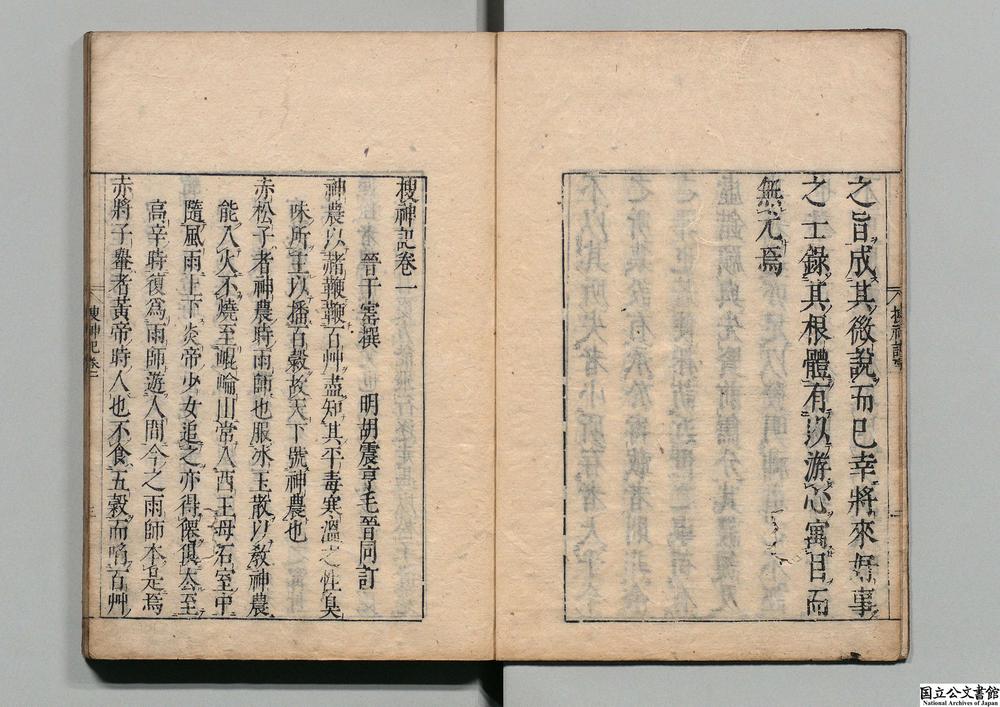 之旨成其微說而已幸將來好事
之士錄其根體有以游心寓目而
無尤焉
搜神記卷一
晉干寶撰　明胡震亨毛晉同訂
神農以赭鞭鞭百艸盡知其平毒寒溫之性臭
味所主以播百穀故天下號神農也
赤松子者神農時雨師也服冰玉散以敎神農
能入火不燒至崐崘山常入西王母石室中
隨風雨上下炎帝少女追之亦得僊俱去至
高辛時復爲雨師遊人間今之雨師本是焉
赤將子轝者黃帝時人也不食五穀而啗百艸
搜神記卷一
三
国立公文書館
National Archives of Japan